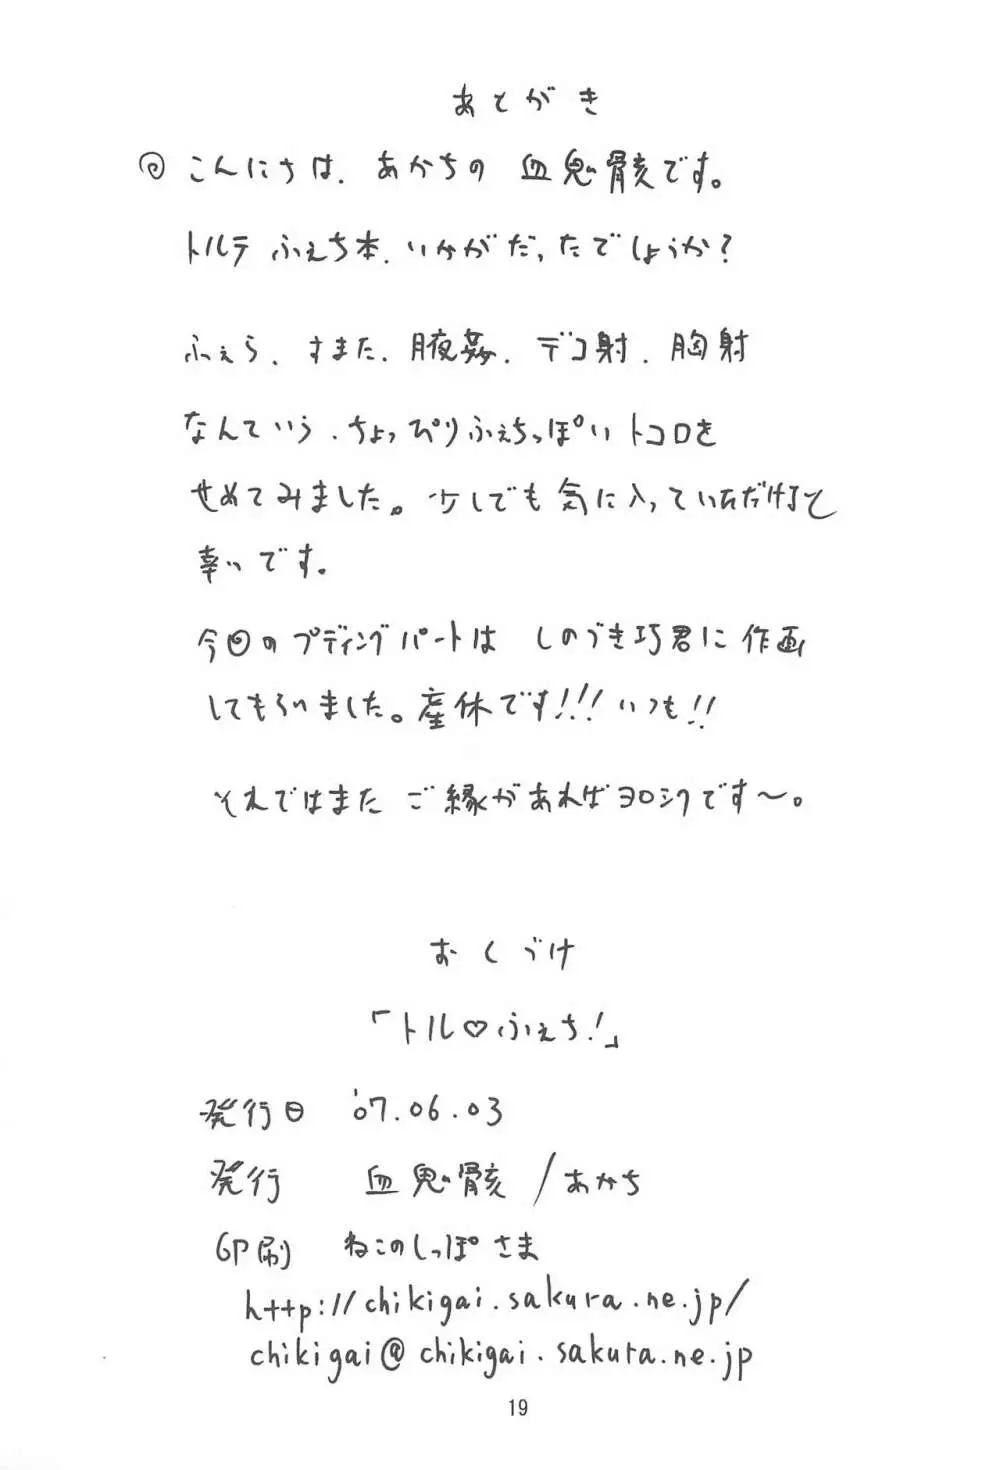 あとがき
こんにちは、あかちの血鬼骸です。
トルテふぇち本、いかがだったでしょうか?
ふぇら、すまた、腋姦、デコ射、胸射
なんていう、ちょっぴりふぇちっぽいトコロを
せめてみました。少しでも気に入っていただけると
幸いです。
今回のプディングパートは しのづき巧君に作画
してもらいました。産休です!!!いつも!!
それではまた ご縁があればヨロシクです〜。
おくづけ
「トル♡ふぇち!」
発行日 '07.06.03
発行 血鬼骸/あかち
印刷 ねこのしっぽさま
http://chikigai.sakura.ne.jp/
chikigai@chikigai.sakura.ne.jp
19